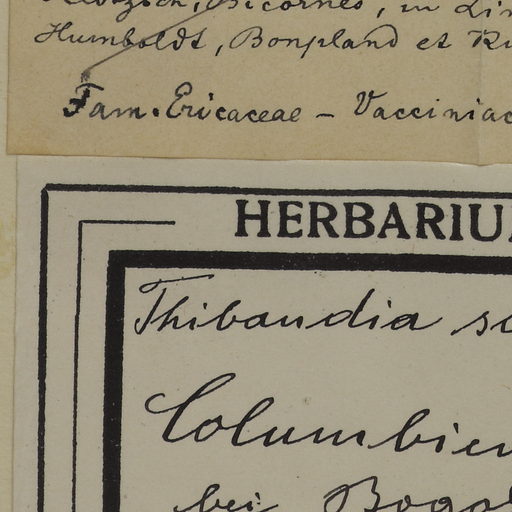 Bicornes, in Lin
Humboldt, Bonpland et Ku
Fam. Ericaceae – Vacciniac
HERBARIU
Thibaudia sc
Columbien
bei Bogot